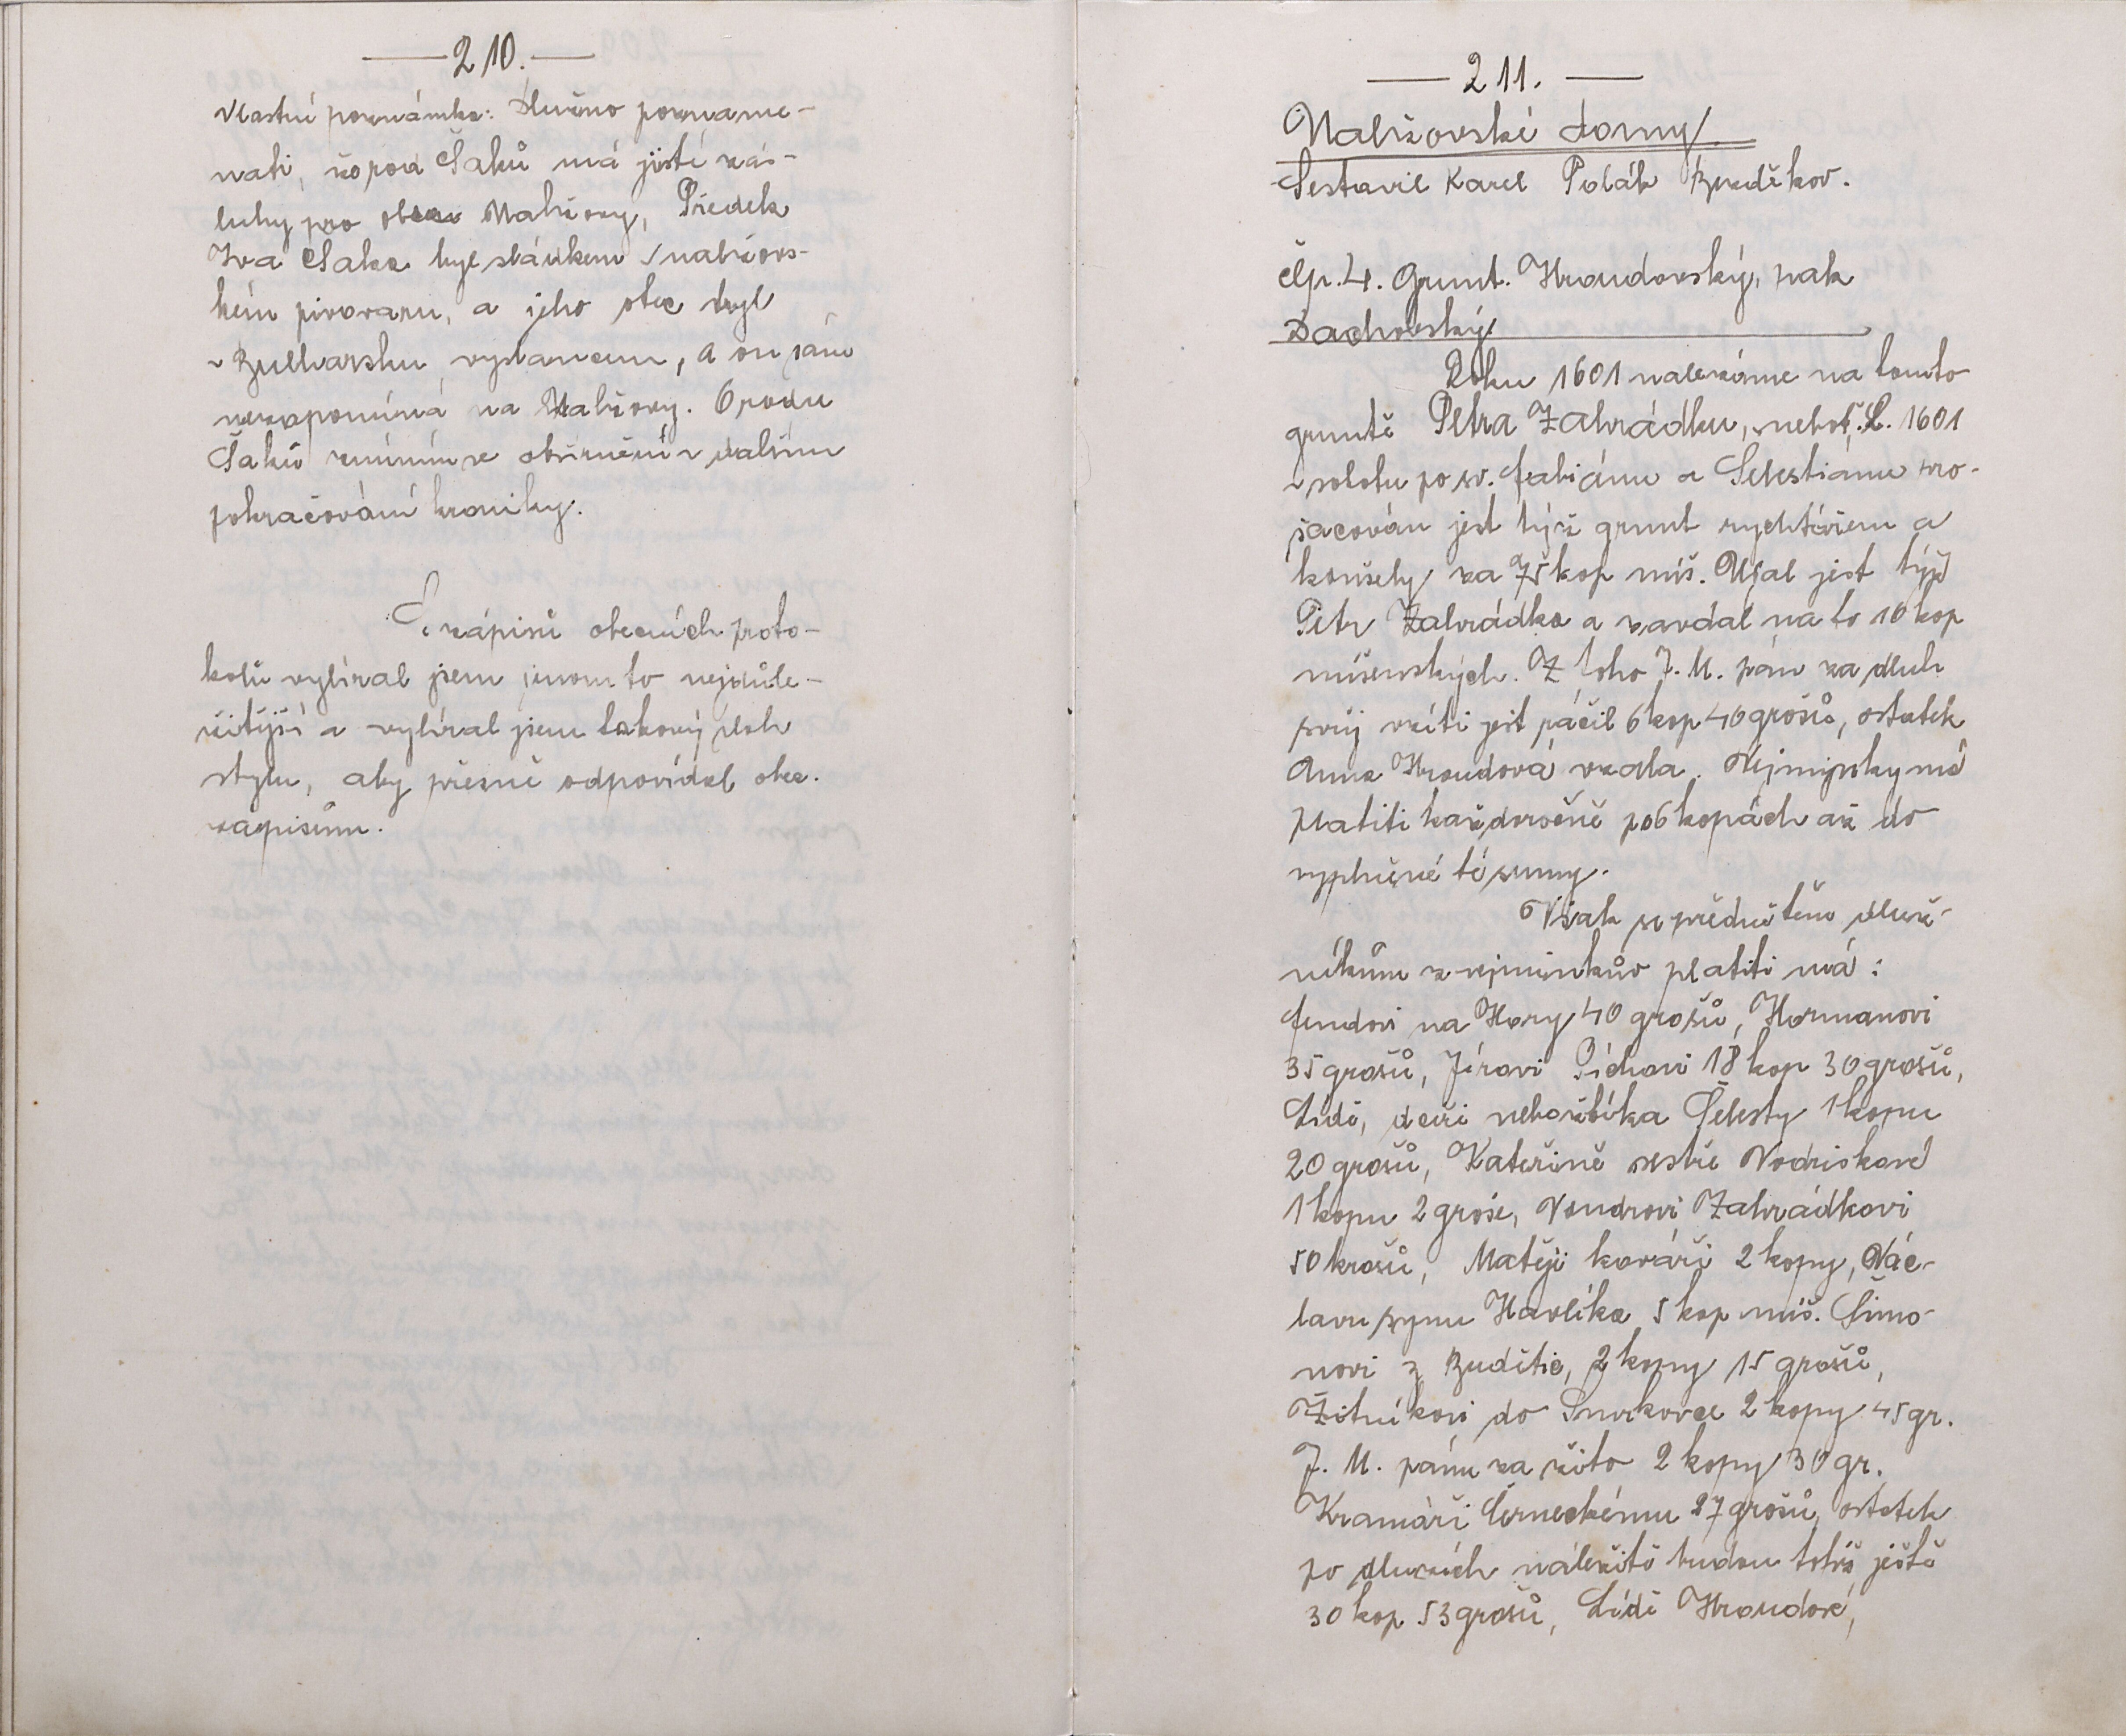 210.
Vlastní poznámka: Dlužno pozname-
nati, že pod Šaků má jisté zás-
luhy pro obec Nalžovy, Předek
Iva Šaka byl sládkem v nalžovs-
kém pivovaru, a jeho otec byl
v Bulharsku vyslancem, a on sám
nezapomíná na Nalžovy. O rodu
Šaků zmíním se obšírněji v dalším
pokračování kroniky.
Z zápisů obecních proto-
kolů vybíral jsem jenom to nejdůle-
žitější a vybíral jsem takový sloh
stylu, aby přesně odpovídal obec.
zápisům.
211.
Nalžovské domy
Sestavil Karel Polák Bezděkov.
Čp. 4. Grunt. Hroudovský, pak
Dachovský
Roku 1601 nalezáme na tomto
gruntě Petra Zahrádku, neboť L. 1601
v sobotu po sv. Fabiánu a Šebestiánu pro-
šacován jest týž grunt rychtářem a
konšely za 75 kop míš. Ujal jest týž
Petr Zahrádka a zavdal na to 10 kop
míšenských. Z toho J. M. pán za dluh
svůj vzíti jest ráčil 6 kop 40 grošů, ostatek
Anna Hroudová vzala. Vejminky má
platiti každoročně po 6 kopách až do
vyplnění té sumy.
Však se předně těm dluž-
níkům z vejminkův platiti má:
Fendovi na Hory 40 grošů, Hermanovi
35 grošů, Jírovi Píchovi 18 kop 30 grošů,
Lídě, dceři nebožtíka Šebesty 1 kopu
20 grošů, Kateřině sestře Vodriskové
1 kopu 2 groše, Vondrovi Zahrádkovi
50 krošů, Matěji kováři 2 kopy, Vác-
lavu synu Havlíka 5 kop míš. Šimo-
novi z Budětic, 2 kopy 15 grošů,
Žitníkovi do Smrkovce 2 kopy 45 gr.
J. M. pánu za žito 2 kopy 30 gr.
Kramáři Černeckému 27 grošů, ostatek
po dluzích náležitě budou totiž ještě
30 kop 53 grošů, Lídě Hroudové,